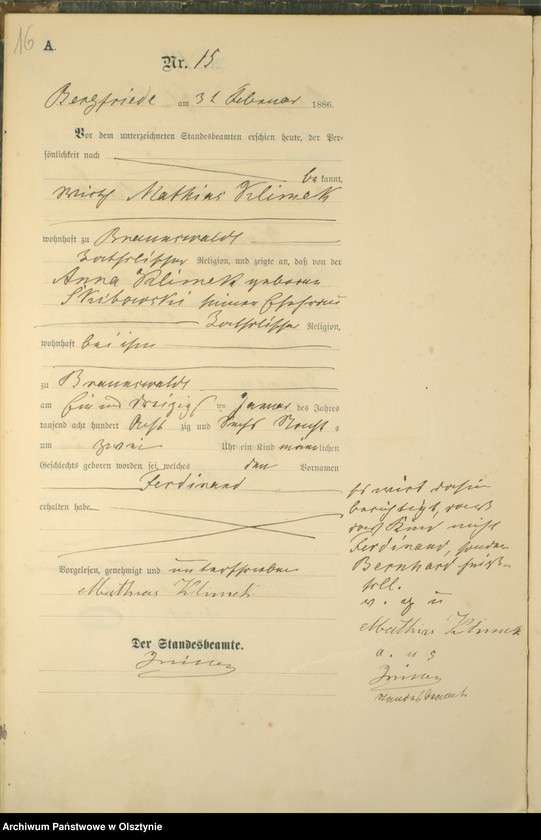 16
A.
Nr. 15
Bergfriede am 3t Februar 1886.
Vor dem unterzeichneten Standesbeamten erschien heute, der Per-
sönlichkeit nach
be kannt,
Wirth Mathias Klimek
wohnhaft zu Braunswalde
katholischer Religion, und zeigte an, daß von der
Anna Klimek geborene
Skibowski seiner Ehefrau
katholischer Religion,
wohnhaft bei ihm
zu Braunswalde
am Ein und dreizig Januar des Jahres
tausend acht hundert Acht zig und Sechs Nachts
um zwei Uhr ein Kind männlichen
Geschlechts geboren worden sei, welches den Vornamen
Ferdinand
erhalten habe.
Vorgelesen, genehmigt und unterschrieben
Mathias Klimek
Der Standesbeamte.
Es wird dahin
berichtigt, daß
das Kind nicht
Ferdinand, sondern
Bernhard heißen
soll.
v. g. u
Mathias Klimek
a. u s
Standesbeamte
Archiwum Państwowe w Olsztynie